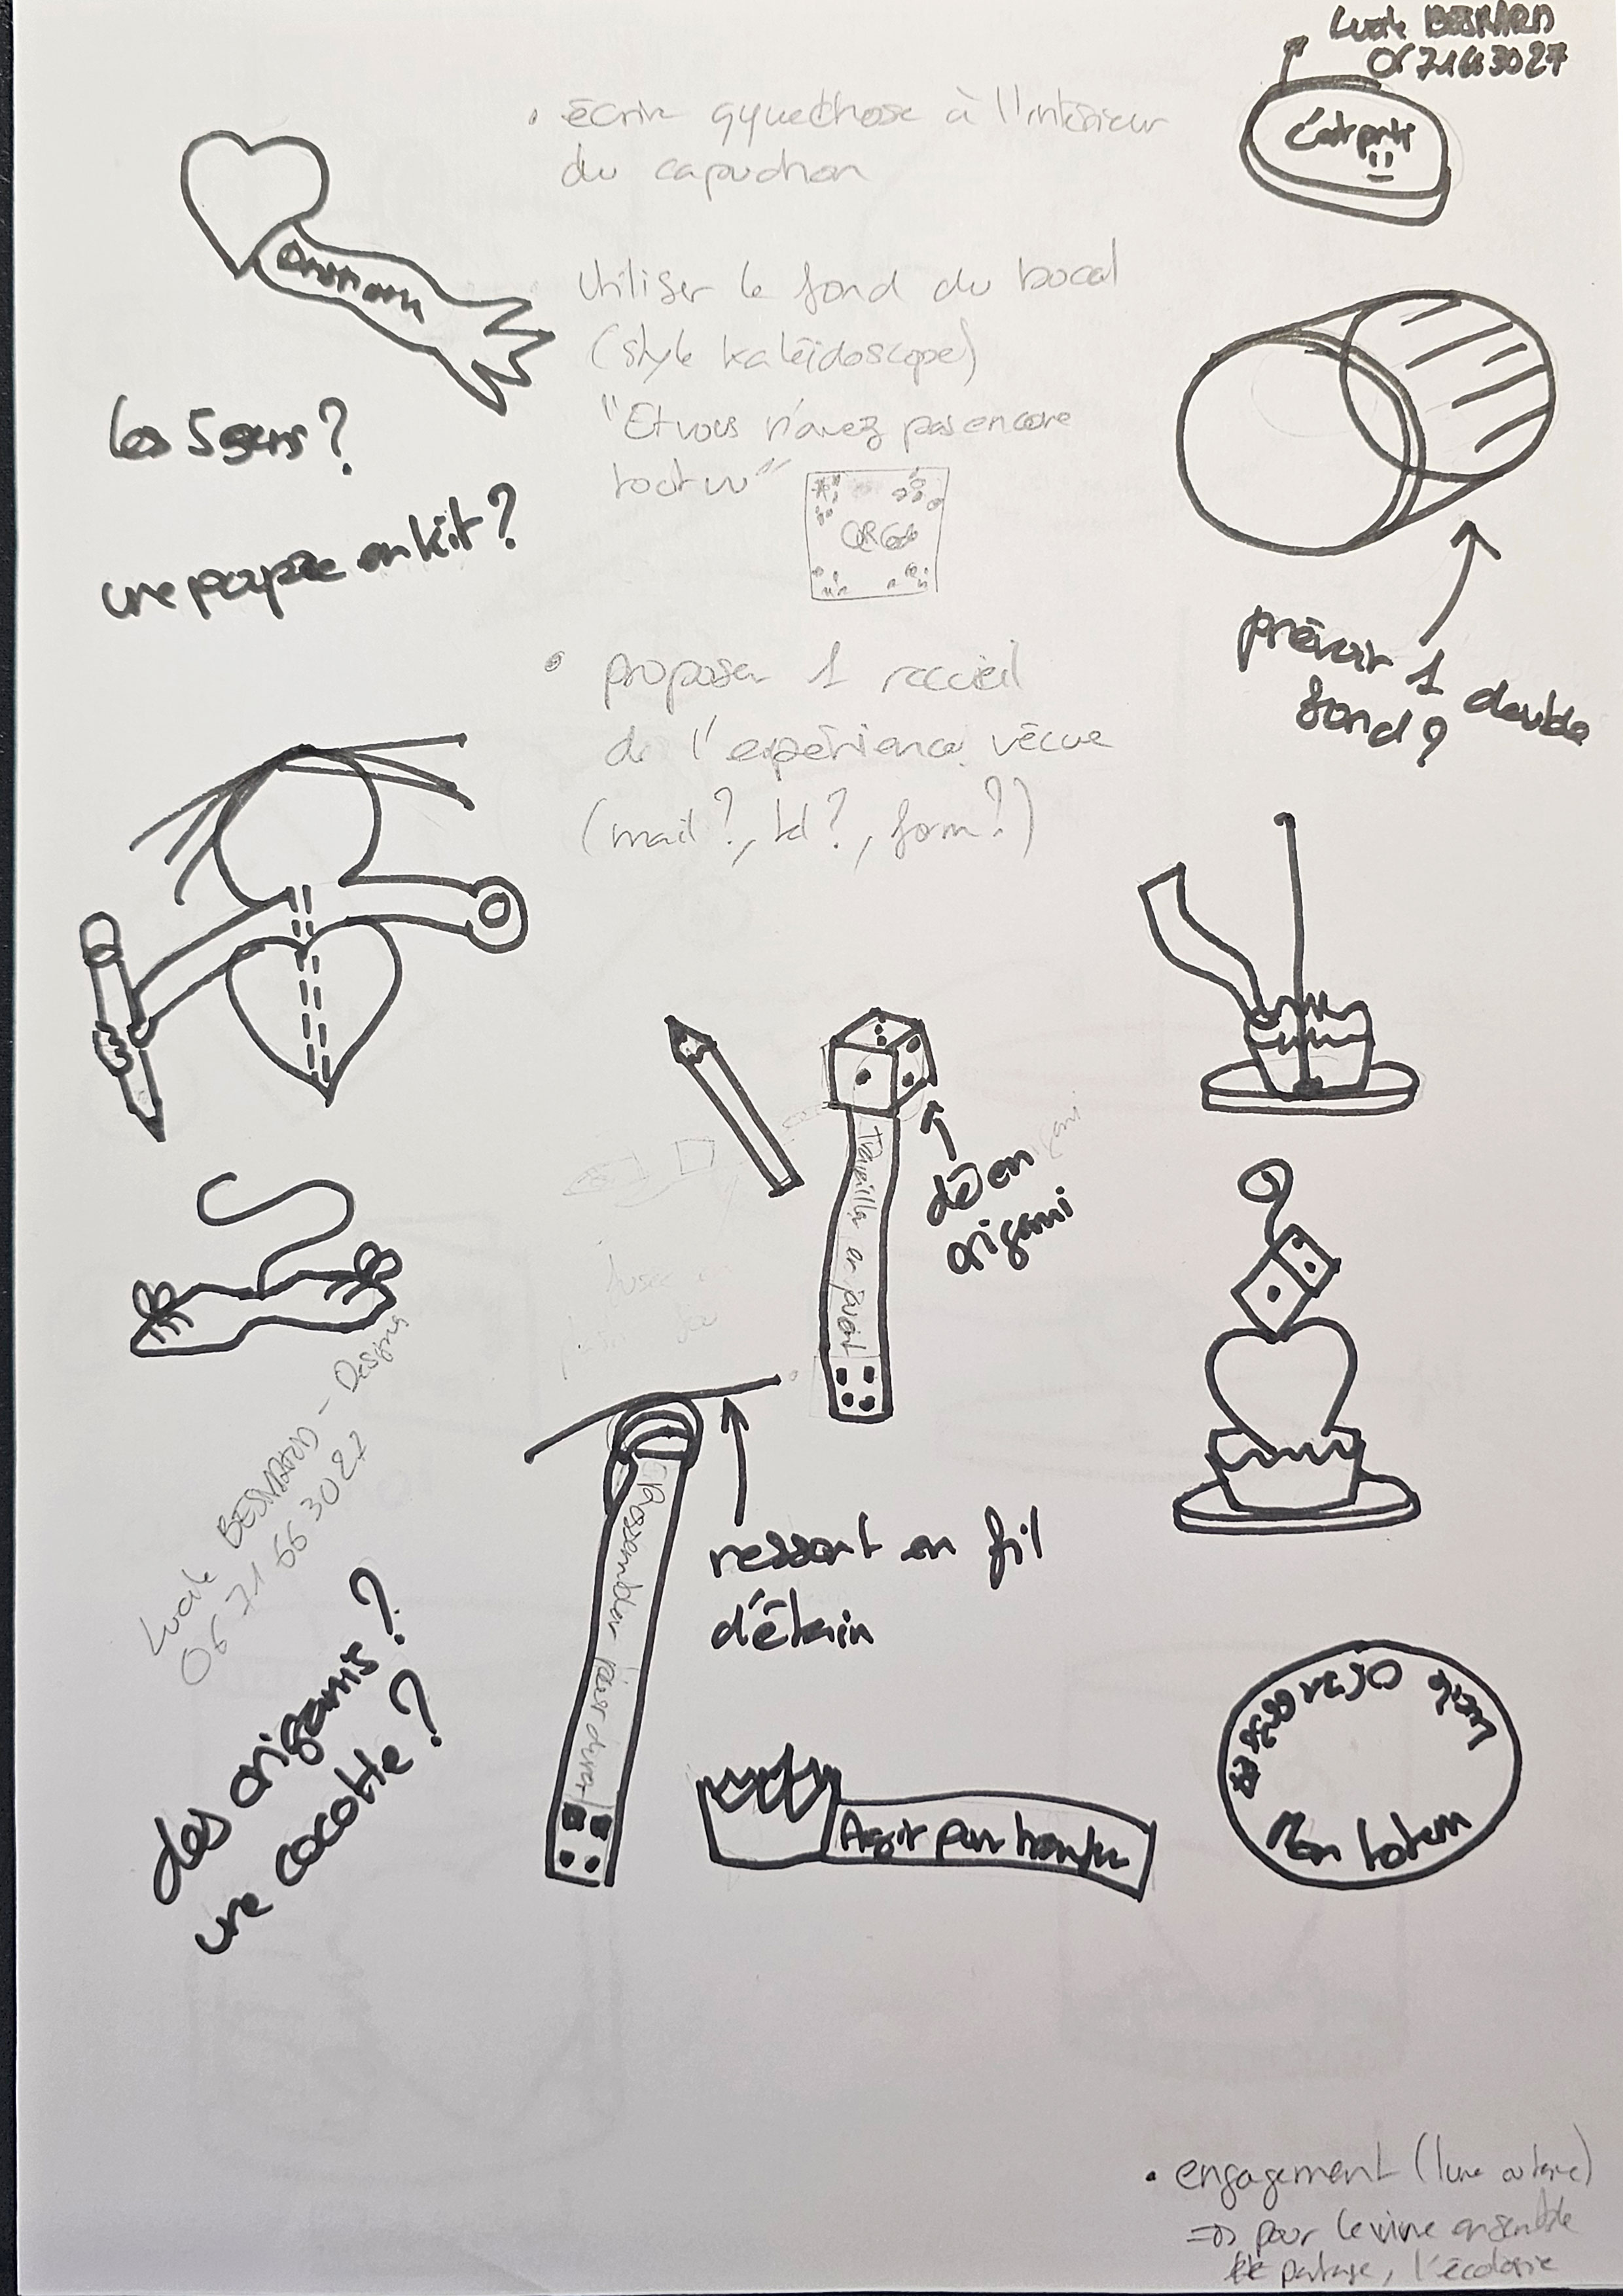 Lucile BESNARD
• écrire qquechose à l'intérieur
du capuchon
C'est parti
Emotions
utiliser le fond du bocal
(style kaléidoscope)
"Et vous n'avez pas encore
tout vu"
QR Code
les 5 sens?
une poupée en kit?
prévoir 1 double
fond?
• proposer 1 recueil
de l'expérience vécue
(mail?, tel?, form?)
dé en
origami
Travailler en jouant
Lucile BESNARD - Design
06 71 66 30 27
Rassembler pour
ressort en fil
d'étain
des origamis?
une cocotte?
Agir pour
Mon totem
• engagement (lune ou terre)
=> pour le vivre ensemble
partage, l'écologie